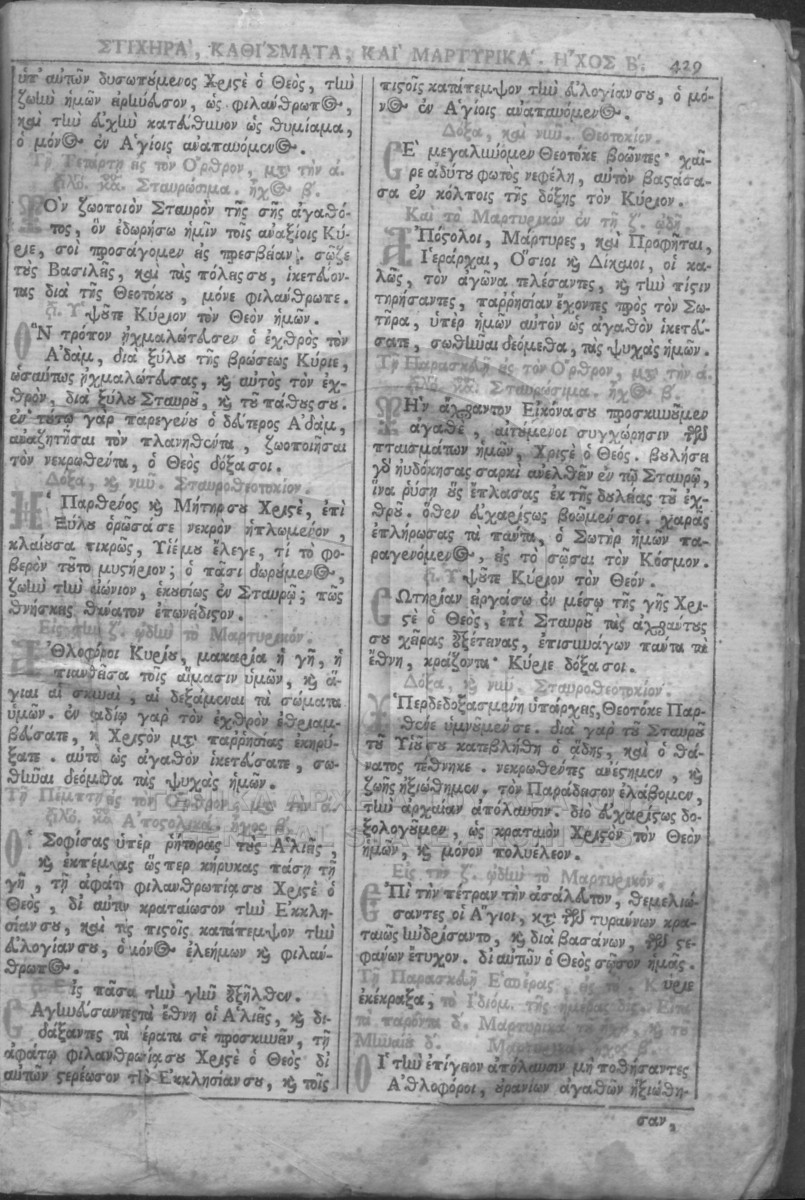 ΣΤΙΧΗΡΑ', ΚΑΘΙ'ΣΜΑΤΑ, ΚΑΙ' ΜΑΡΤΥΡΙΚΑ'. Η'ΧΟΣ Β'. 429
ὑπ' αὐτῶν δυσωπούμενος Χριστὲ ὁ Θεὸς, τὴν
ζωὴν ἡμῶν εἰρήνευσον, ὡς φιλάνθρωπος,
καὶ τὴν εὐχὴν κατεύθυνον ὡς θυμίαμα,
ὁ μόνος ἐν Ἁγίοις ἀναπαυόμενος.
Τῇ Τετάρτῃ εἰς τὸν Ὄρθρον, μετὰ τὴν α.
στιχολ. καθ. Σταυρώσιμα. ἦχος β'.
ΤΟν ζωοποιὸν Σταυρὸν τῆς σῆς ἀγαθό-
τος, ὃν ἐδωρήσω ἡμῖν τοῖς ἀναξίοις Κύ-
ριε, σοὶ προσάγομεν εἰς πρεσβείαν. σῶζε
τοὺς Βασιλεῖς, καὶ τὰς πόλεις σου, ἱκετεύον-
τας διὰ τῆς Θεοτόκου, μόνε φιλάνθρωπε.
στ. Ὑψοῦτε Κύριον τὸν Θεὸν ἡμῶν.
ΟΝ τρόπον ᾐχμαλώτευσεν ὁ ἐχθρὸς τὸν
Ἀδὰμ, διὰ ξύλου τῆς βρώσεως Κύριε,
ὡσαύτως ᾐχμαλώτευσας, καὶ αὐτὸς τὸν ἐχ-
θρὸν, διὰ ξύλου Σταυροῦ, καὶ τοῦ πάθους σου.
ἐν τούτῳ γὰρ παρεγένου ὁ δεύτερος Ἀδὰμ,
ἀναζητῆσαι τὸν πλανηθέντα, ζωοποιῆσαι
τὸν νεκρωθέντα, ὁ Θεὸς δόξα σοι.
Δόξα, καὶ νῦν. Σταυροθεοτοκίον.
Η Παρθένος καὶ Μήτηρ σου Χριστὲ, ἐπὶ
Ξύλου ὁρῶσά σε νεκρὸν ἡπλωμένον,
κλαίουσα πικρῶς, Υἱέ μου ἔλεγε, τί τὸ φο-
βερὸν τοῦτο μυστήριον; ὁ πᾶσι δωρούμενος,
ζωὴν τὴν αἰώνιον, ἑκουσίως ἐν Σταυρῷ; πῶς
θνῄσκεις θάνατον ἐπονείδιστον.
Εἰς τὴν ζ'. ᾠδὴν τὸ Μαρτυρικόν.
ΑΘλοφόροι Κυρίου, μακαρία ἡ γῆ, ἡ
πιανθεῖσα τοῖς αἵμασιν ὑμῶν, καὶ ἅ-
γιαι αἱ σκηναὶ, αἱ δεξάμεναι τὰ σώματα
ὑμῶν. ἐν σταδίῳ γὰρ τὸν ἐχθρὸν ἐθριαμ-
βεύσατε, καὶ Χριστὸν μετὰ παῤῥησίας ἐκηρύ-
ξατε. αὐτὸν ὡς ἀγαθὸν ἱκετεύσατε, σω-
θῆναι δεόμεθα τὰς ψυχὰς ἡμῶν.
Τῇ Πέμπτῃ εἰς τὸν Ὄρθρον, μετὰ τὴν α.
στιχολ. καθ. Ἀποστολικά. ἦχος β'.
Ο Σοφίσας ὑπὲρ ῥήτορας τοὺς Ἁλιεῖς,
καὶ ἐκπέμψας ὥσπερ κήρυκας πάσῃ τῇ
γῇ, τῇ ἀφάτῳ φιλανθρωπίᾳ σου Χριστὲ ὁ
Θεὸς, δι' αὐτῶν κραταίωσον τὴν Ἐκκλη-
σίαν σου, καὶ τοῖς πιστοῖς κατάπεμψον τὴν
εὐλογίαν σου, ὁ μόνος ἐλεήμων καὶ φιλάν-
θρωπος.
στ. Εἰς πᾶσαν τὴν γῆν ἐξῆλθεν.
ΣΑγηνεύσαντες τὰ ἔθνη οἱ Ἁλιεῖς, καὶ δι-
δάξαντες τὰ πέρατα σὲ προσκυνεῖν, τῇ
ἀφάτῳ φιλανθρωπίᾳ σου Χριστὲ ὁ Θεὸς δι'
αὐτῶν στερέωσον τὴν Ἐκκλησίαν σου, καὶ τοῖς
πιστοῖς κατάπεμψον τὴν εὐλογίαν σου, ὁ μό-
νος ἐν Ἁγίοις ἀναπαυόμενος.
Δόξα, καὶ νῦν. Θεοτοκίον.
ΣΕ' μεγαλύνομεν Θεοτόκε βοῶντες· χαῖ-
ρε ἀδύτου φωτὸς νεφέλη, αὐτὸν βαστάσα-
σα ἐν κόλποις τῆς δόξης τὸν Κύριον.
Καὶ τὸ Μαρτυρικὸν ἐν τῇ ζ'. ᾠδῇ.
ΑΠόστολοι, Μάρτυρες, καὶ Προφῆται,
Ἱεράρχαι, Ὅσιοι καὶ Δίκαιοι, οἱ κα-
λῶς, τὸν ἀγῶνα τελέσαντες, καὶ τὴν πίστιν
τηρήσαντες, παῤῥησίαν ἔχοντες πρὸς τὸν Σω-
τῆρα, ὑπὲρ ἡμῶν αὐτὸν ὡς ἀγαθὸν ἱκετεύ-
σατε, σωθῆναι δεόμεθα, τὰς ψυχὰς ἡμῶν.
Τῇ Παρασκευῇ εἰς τὸν Ὄρθρον, μετὰ τὴν α.
στιχολ. καθ. Σταυρώσιμα. ἦχος β'.
ΤΗν ἄχραντον Εἰκόνα σου προσκυνοῦμεν
ἀγαθὲ, αἰτούμενοι συγχώρησιν τῶν
πταισμάτων ἡμῶν, Χριστὲ ὁ Θεός. βουλήσει
γὰρ ηὐδόκησας σαρκὶ ἀνελθεῖν ἐν τῷ Σταυρῷ,
ἵνα ῥύσῃ οὓς ἔπλασας ἐκ τῆς δουλείας τοῦ ἐχ-
θροῦ. ὅθεν εὐχαρίστως βοῶμέν σοι. χαρᾶς
ἐπλήρωσας τὰ πάντα, ὁ Σωτὴρ ἡμῶν πα-
ραγενόμενος, εἰς τὸ σῶσαι τὸν Κόσμον.
στ. Ὑψοῦτε Κύριον τὸν Θεόν.
ΣΩτηρίαν εἰργάσω ἐν μέσῳ τῆς γῆς Χρι-
στὲ ὁ Θεὸς, ἐπὶ Σταυροῦ τὰς ἀχράντους
σου χεῖρας ἐξέτεινας, ἐπισυνάγων πάντα τὰ
ἔθνη, κράζοντα· Κύριε δόξα σοι.
Δόξα, καὶ νῦν. Σταυροθεοτοκίον.
ΥΠερδεδοξασμένη ὑπάρχεις, Θεοτόκε Παρ-
θένε ὑμνοῦμέν σε. διὰ γὰρ τοῦ Σταυροῦ
τοῦ Υἱοῦ σου κατεβλήθη ὁ ᾅδης, καὶ ὁ θά-
νατος τέθνηκε. νεκρωθέντες ἀνέστημεν, καὶ
ζωῆς ἠξιώθημεν. τὸν Παράδεισον ἐλάβομεν,
τὴν ἀρχαίαν ἀπόλαυσιν. διὸ εὐχαρίστως δο-
ξολογοῦμεν, ὡς κραταιὸν Χριστὸν τὸν Θεὸν
ἡμῶν, καὶ μόνον πολυέλεον.
Εἰς τὴν ζ'. ᾠδὴν τὸ Μαρτυρικόν.
ΕΠὶ τὴν πέτραν τὴν ἀσάλευτον, θεμελιώ-
σαντες οἱ Ἅγιοι, κατὰ τῶν τυράννων κρα-
ταιῶς ἠνδρίσαντο, καὶ διὰ βασάνων, τῶν στε-
φάνων ἔτυχον. δι' αὐτῶν ὁ Θεὸς σῶσον ἡμᾶς.
Τῇ Παρασκευῇ Ἑσπέρας, εἰς τὸ. Κύριε
ἐκέκραξα, τὸ Ἰδιόμ. τῆς ἡμέρας δίς. Εἶτα
τὰ παρόντα δ'. Μαρτυρικὰ ἤχου, καὶ τοῦ
Μηναίου δ'. Μαρτυρικὰ ἦχος β'.
ΟΙ τὴν ἐπίγειον ἀπόλαυσιν μὴ ποθήσαντες
Ἀθλοφόροι, οὐρανίων ἀγαθῶν ἠξιώθη-
σαν,